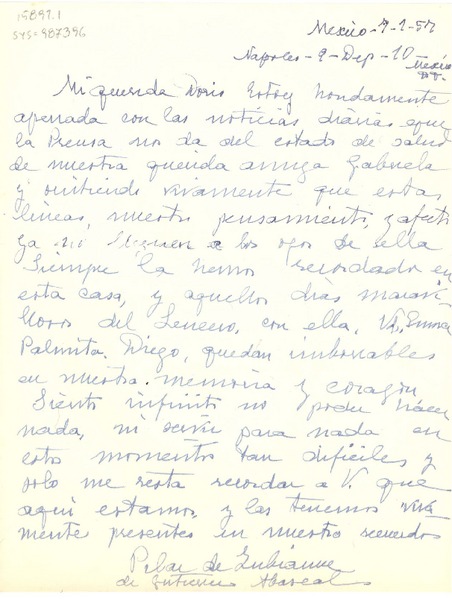 19897.1
SYS=987396
Mexico-9-1-57
Napoles-9-Dep-10-Mexico
D.F.
Mi querida Doris Estoy hondamente
apenada con las noticias diarias que
la Prensa no da del estado de salud
de nuestra querida amiga Gabriela
y sintiendo vivamente que estas
lineas, nuestro pensamiento, y afecto
ya no lleguen a los ojos de ella
Siempre la hemos recordado en
esta casa, y aquellos dias maravi-
llosos del Lencero, con ella, Vd, Emma
Palmita. Diego, quedan imborrables
en nuestra memoria y corazón
Siento infinito no poder hacer
nada, ni servir para nada en
estos momentos tan dificiles y
solo me resta recordar a V. que
aqui estamos, y las tenemos viva
mente presentes en nuestro recuerdos
Pilar de Zubiaurre
de Gutierrez Abascal